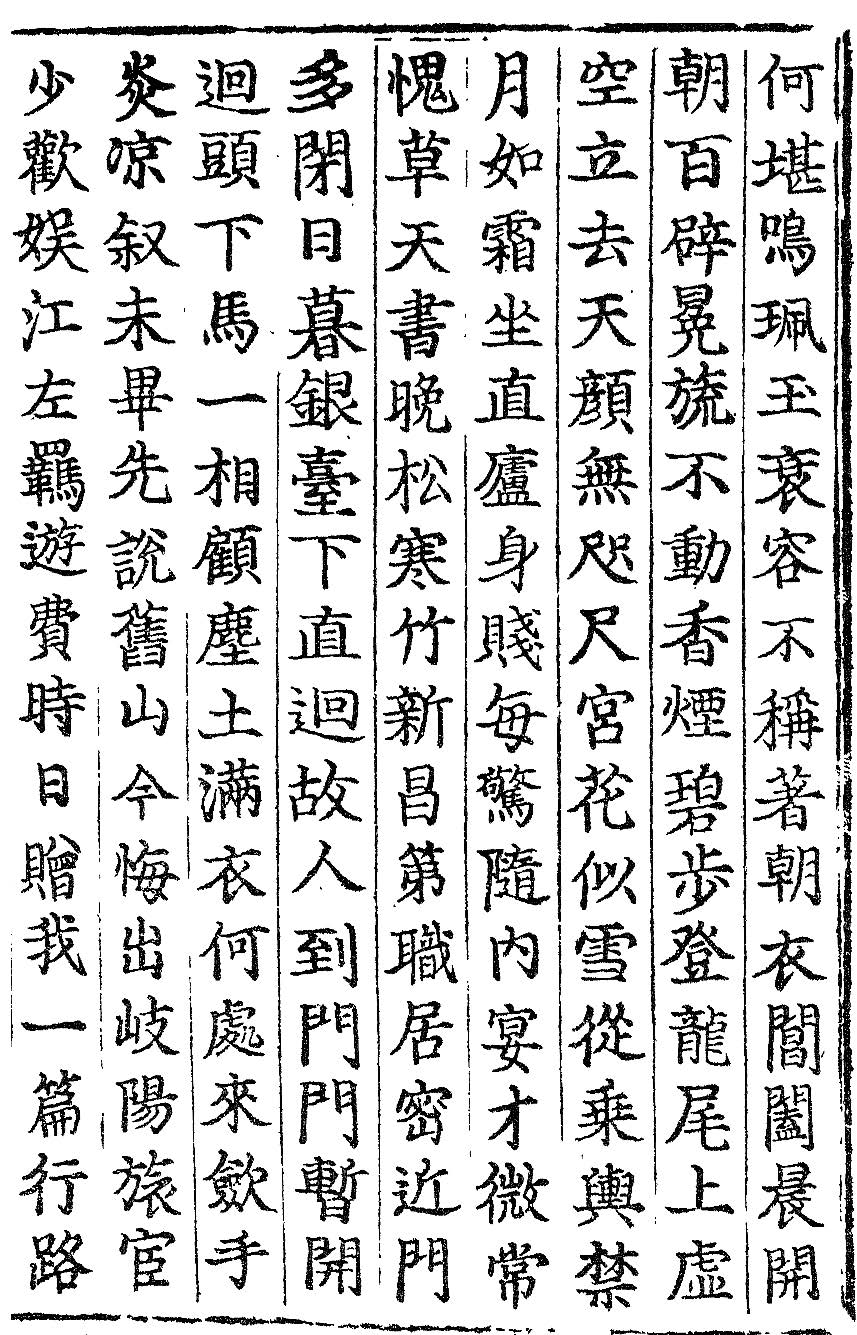 何堪鳴珮玉衰容不稱著朝衣閶闔晨開
朝百辟冕旒不動香煙碧步登龍尾上虛
空立去天顔無咫尺宮花似雪從乗輿禁
月如霜坐直廬身賤每驚隨內宴才微常
愧草天書晚松寒竹新昌第職居密近門
多閉日暮銀臺下直迴故人到門門暫開
迴頭下馬一相顧塵土滿衣何處來斂手
炎凉叙未畢先說舊山今悔出岐陽旅宦
少歡娱江左羈遊費時日贈我一篇行路